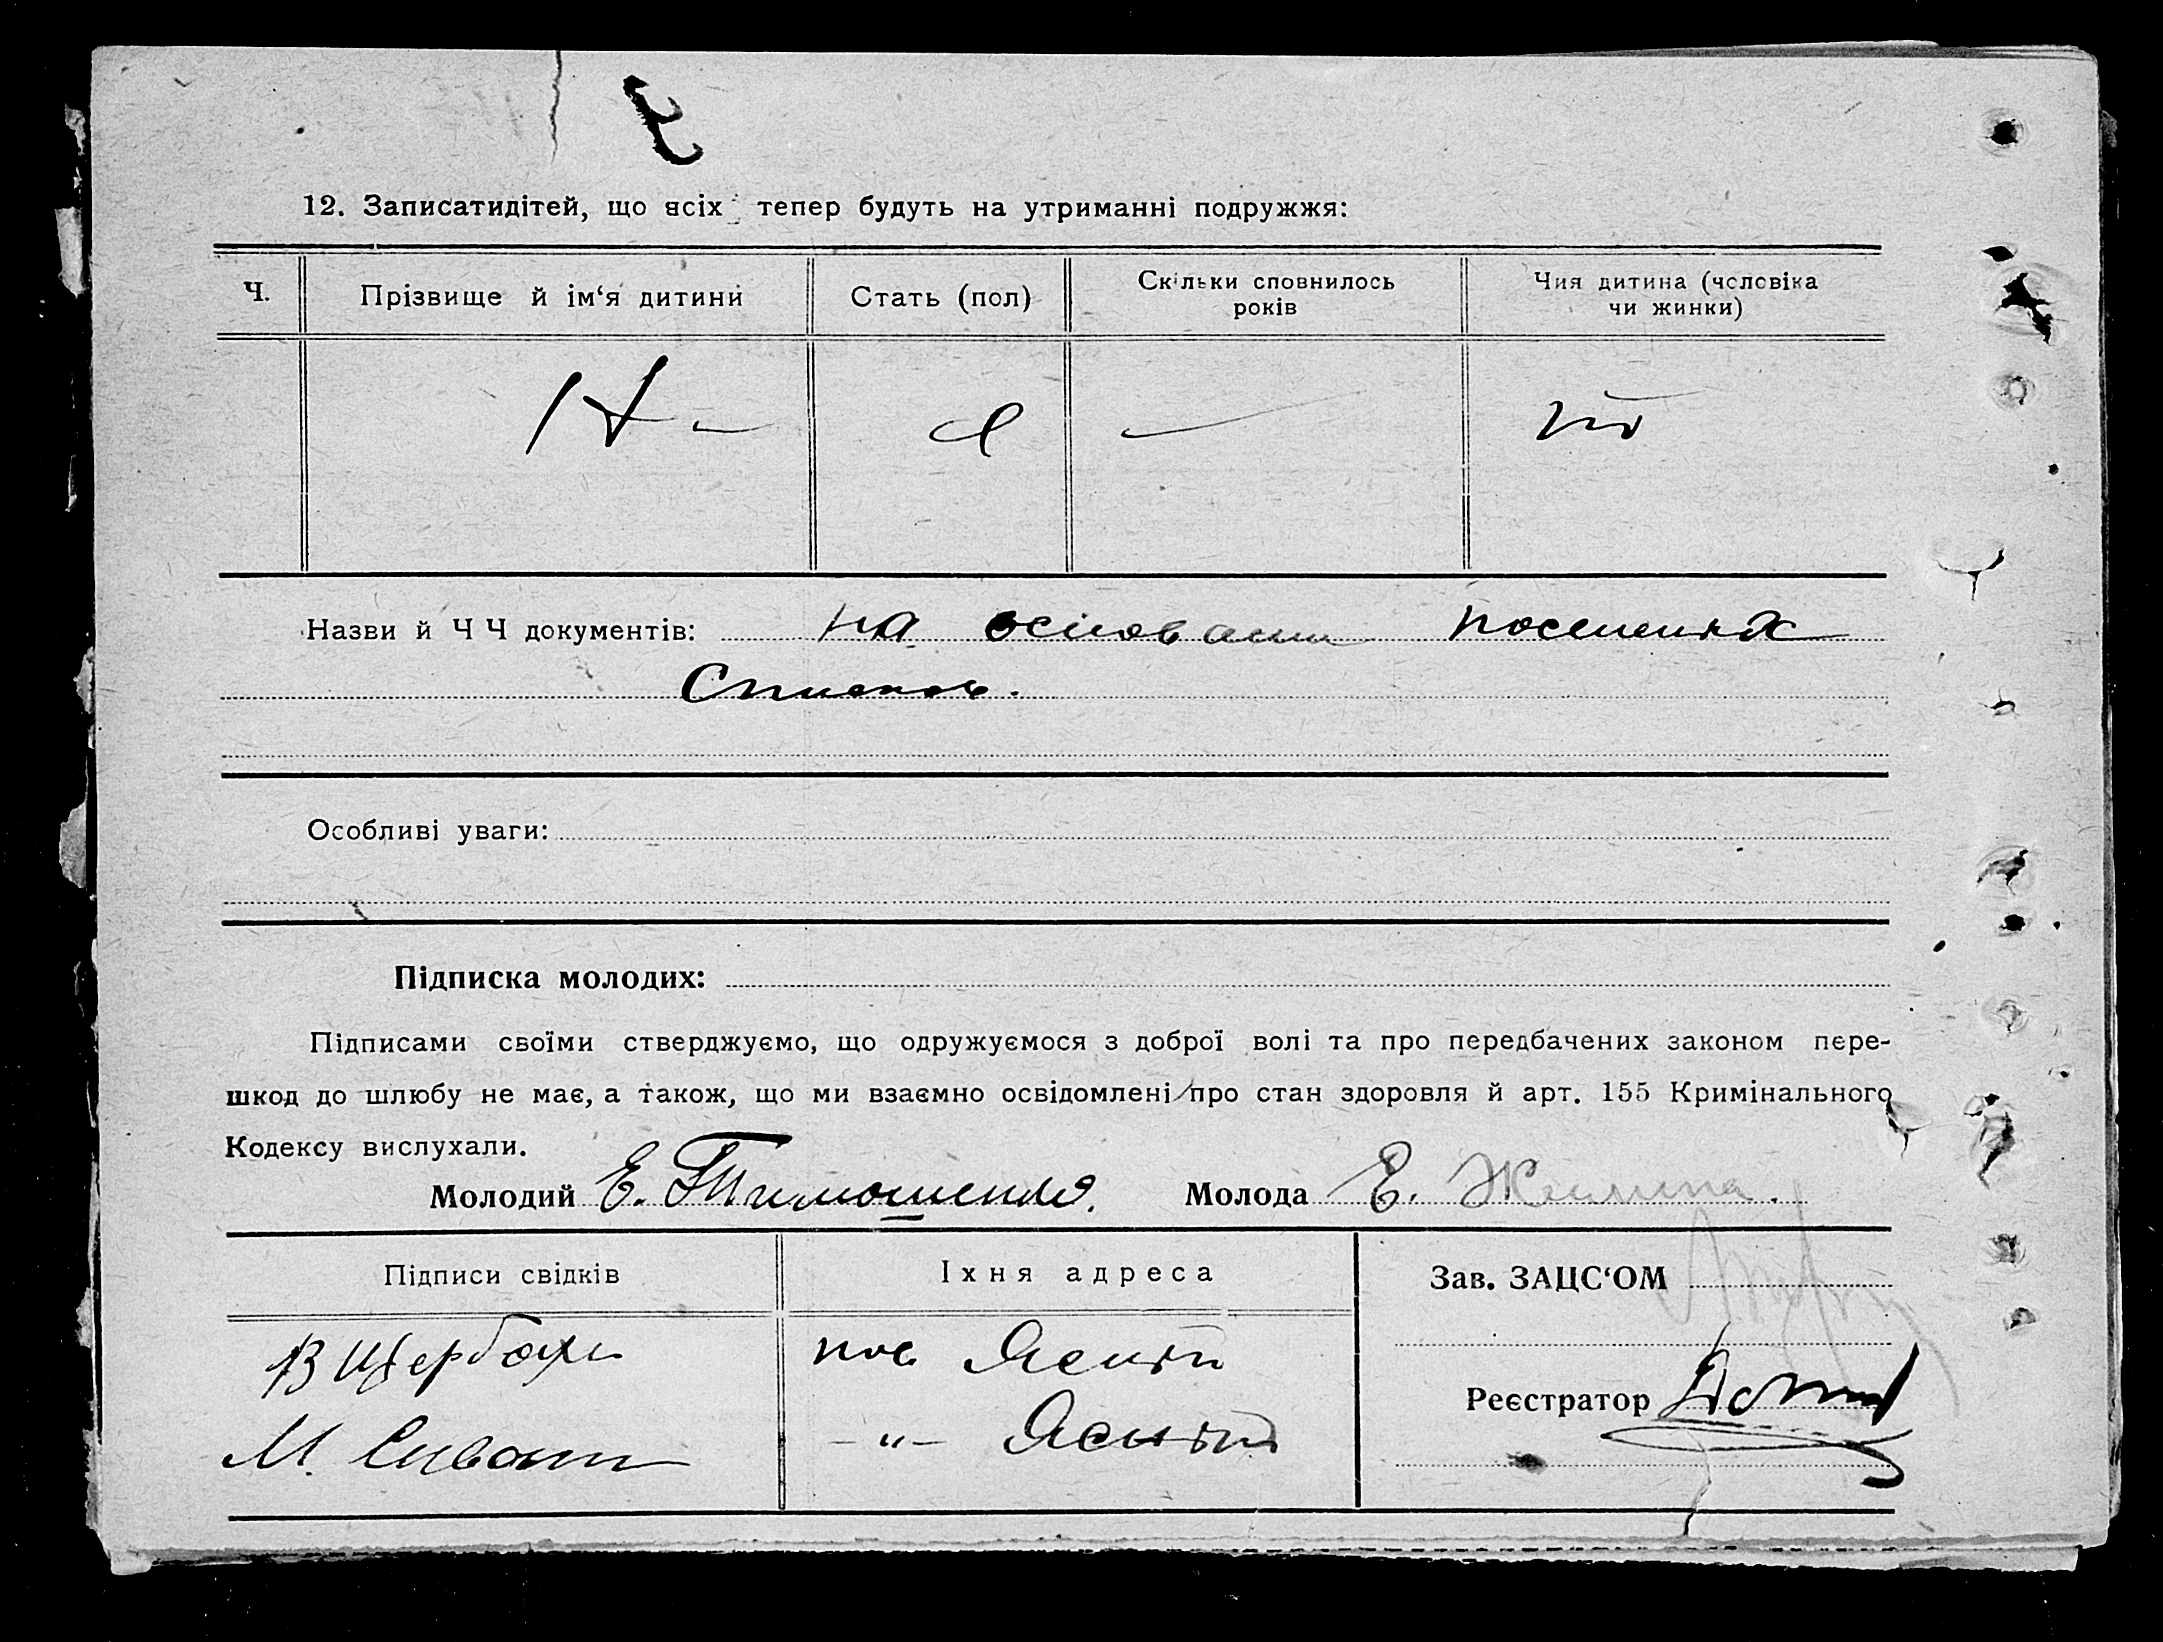 12. Записатидітей, що всіх тепер будуть на утриманні подружжя:
Ч.
Прізвище й ім‘я дитини
Стать (пол)
Скільки сповнилось
років
Чия дитина (чоловіка
чи жинки)
Назви й Ч Ч документів: на основании
Списков.
Особливі уваги:
Підписка молодих:
Підписами своїми стверджуємо, що одружуємося з доброї волі та про передбачених законом пере-
шкод до шлюбу не має, а також, що ми взаємно освідомлені про стан здоровля й арт. 155 Кримінального
Кодексу вислухали.
Молодий Е. Тимошенко. Молода Е.
Підписи свідків
Іхня адреса
Зав. ЗАЦС‘ОМ
В Щербах
пос
М.
– „ –
Реєстратор